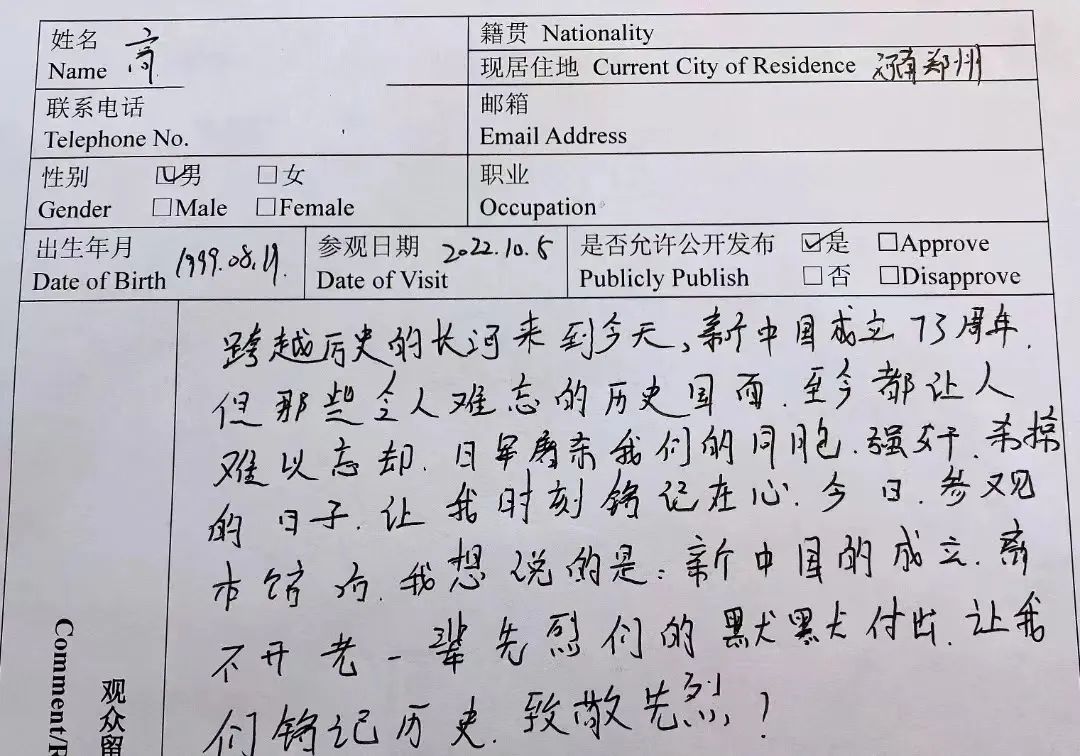 姓名 商
Name
籍贯 Nationality
现居住地 Current City of Residence 河南郑州
联系电话
Telephone No.
邮箱
Email Address
性别 ☑男 □女
Gender □Male □Female
职业
Occupation
出生年月 1999.08.19.
Date of Birth
参观日期 2022.10.5
Date of Visit
是否允许公开发布 ☑是 □Approve
Publicly Publish □否 □Disapprove
跨越历史的长河来到今天,新中国成立73周年.
但那些令人难忘的历史画面.至今都让人
难以忘却.日军屠杀我们的同胞.强奸.杀掠
的日子.让我时刻铭记在心.今日.参观
本馆后.我想说的是:新中国的成立.离
不开老一辈先烈们的默默付出.让我
们铭记历史.致敬先烈!
观众留
Comment/R